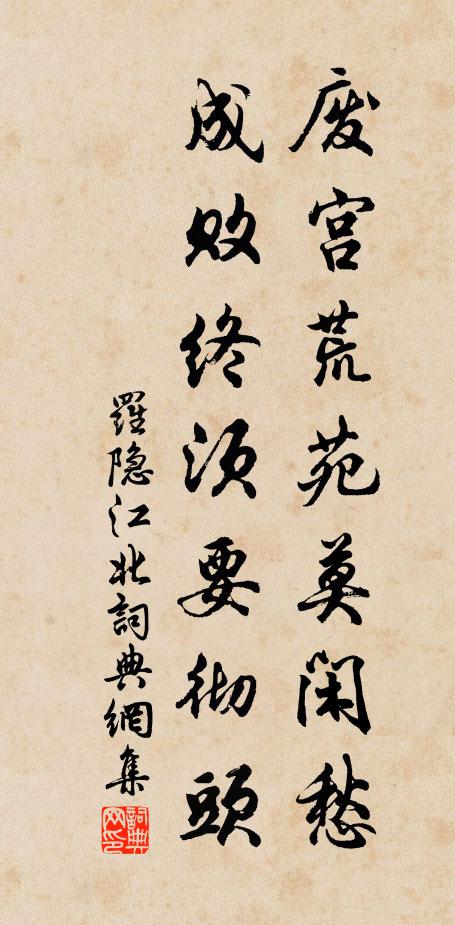 废宫荒苑莫闲愁
成败终须要彻头
羅隐江北詞典網集
詞典网印